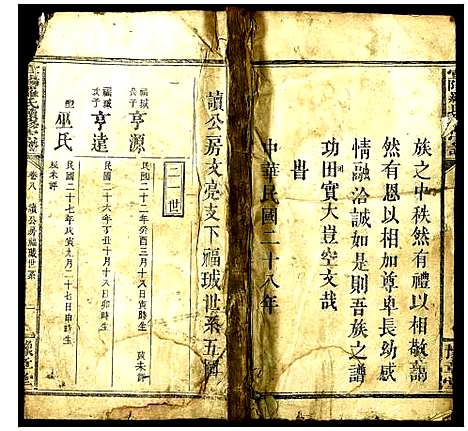 族之中秩然有禮以相敬藹
然有恩以相加尊卑長幼感
情融洽誠如是則吾族之譜
功田實大豈空文哉
旹
中華民國二十八年
讀公房文亮支下福珹世系五圖
二一世
福珹長子 亨源
民國二十二年癸酉三月十八日寅時生
歿未詳
福珹次子 亨達
民國二十六年丁丑十月十八日卯時生
配 巫氏
民國二十七年戊寅九月二十七日卯時生
歿未詳
卷八
讀公房福珹世系
豫章堂